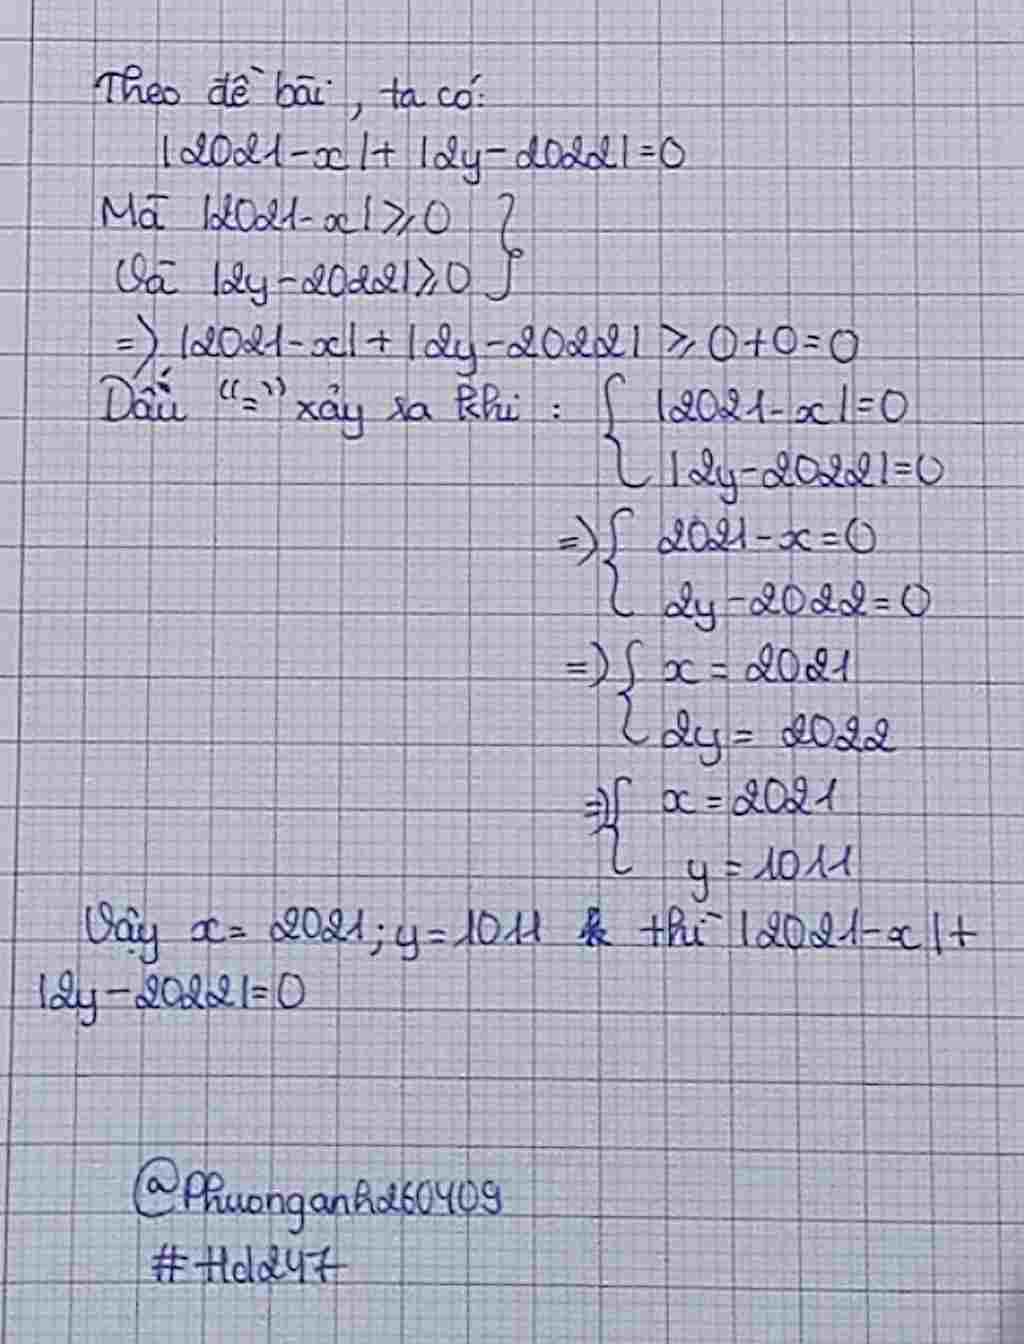 Theo đề bài, ta có:
|2021-x|+|2y-2022|=0
Mà |2021-x|≥0 }
Và |2y-2022|≥0
=> |2021-x|+|2y-2022|≥0+0=0
Dấu "=" xảy ra khi : { |2021-x|=0
|2y-2022|=0
=> { 2021-x=0
2y-2022=0
=> { x=2021
2y=2022
=> { x=2021
y=1011
Vậy x=2021; y=1011 thì |2021-x|+
|2y-2022|=0
@Phuonganh260409
#Hd247